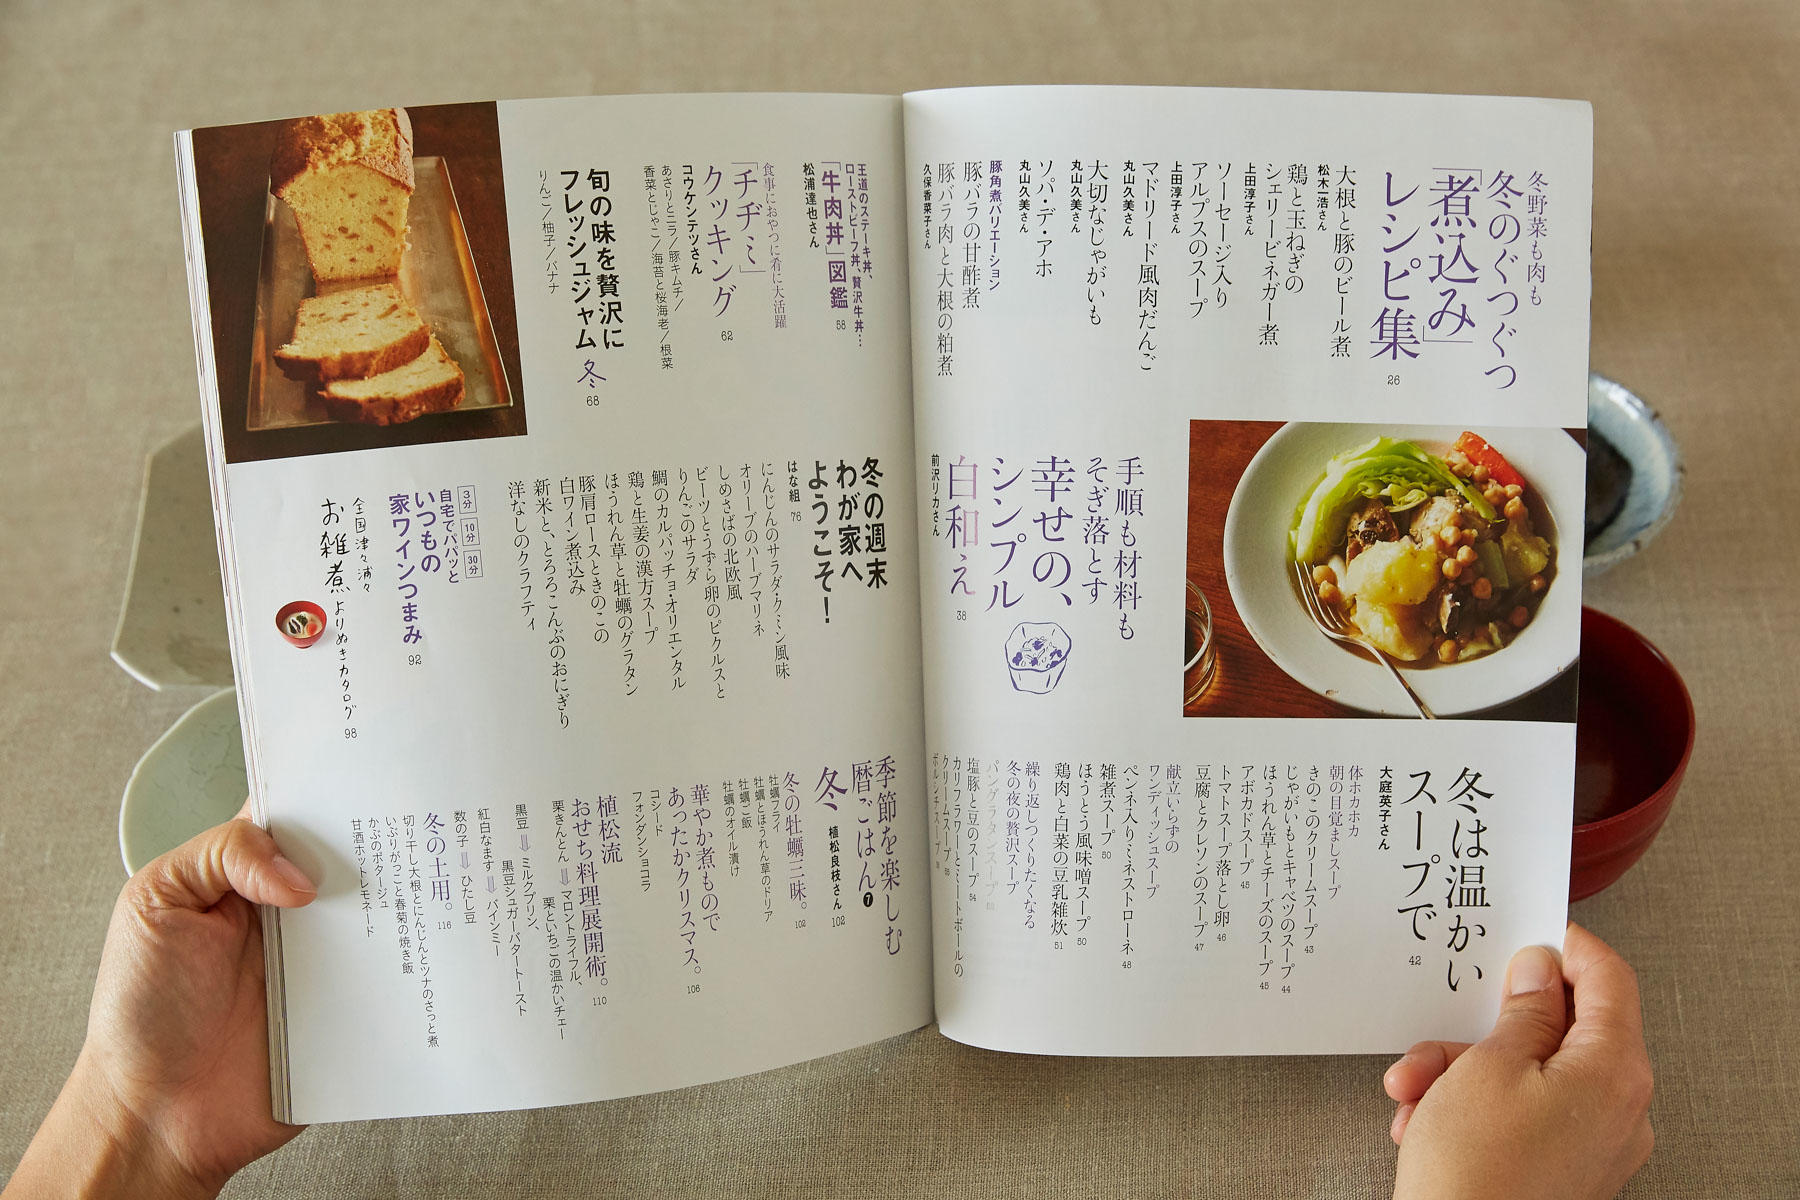 冬野菜も肉も
冬のぐつぐつ
「煮込み」
レシピ集
26
大根と豚のビール煮
松木一浩さん
鶏と玉ねぎの
シェリービネガー煮
上田淳子さん
ソーセージ入り
アルプスのスープ
上田淳子さん
マドリード風肉だんご
丸山久美さん
大切なじゃがいも
丸山久美さん
ソパ・デ・アホ
丸山久美さん
豚角煮バリエーション
豚バラの甘酢煮
豚バラ肉と大根の粕煮
久保香菜子さん
手順も材料も
そぎ落とす
幸せの、
シンプル
白和え
38
前沢リカさん
冬は温かい
スープで
42
大庭英子さん
体ホカホカ
朝の目覚ましスープ
きのこのクリームスープ 43
じゃがいもとキャベツのスープ 44
ほうれん草とチーズのスープ 45
アボカドスープ 45
トマトスープ落とし卵 46
豆腐とクレソンのスープ 47
献立いらずの
ワンディッシュスープ
ペンネ入りミネストローネ 48
ほうとう風味噌スープ 50
雑煮スープ 50
鶏肉と白菜の豆乳雑炊 51
繰り返しつくりたくなる
冬の夜の贅沢スープ
パングラタンスープ
塩豚と豆のスープ 54
カリフラワーとミートボールの
クリームスープ
ボルシチスープ
王道のステーキ丼、
ローストビーフ丼、贅沢牛丼…
「牛肉丼」図鑑
58
松浦達也さん
食事におやつに肴に大活躍
「チヂミ」
クッキング
62
コウケンテツさん
あさりとニラ/豚キムチ/
香菜とじゃこ/海苔と桜海老/根菜
旬の味を贅沢に
フレッシュジャム 冬
68
りんご/柚子/バナナ
冬の週末
わが家へ
ようこそ!
はな組 76
にんじんのサラダ・クミン風味
オリーブのハーブマリネ
しめさばの北欧風
ビーツとうずら卵のピクルスと
りんごのサラダ
鯛のカルパッチョ・オリエンタル
鶏と生姜の漢方スープ
ほうれん草と牡蠣のグラタン
豚肩ロースときのこの
白ワイン煮込み
新米と、とろろこんぶのおにぎり
洋なしのクラフティ
3分 10分 30分
自宅でパパッと
いつもの
家ワインつまみ
92
全国津々浦々
お雑煮よりぬきカタログ 98
季節を楽しむ
暦ごはん❼
冬
植松良枝さん 102
冬の牡蠣三昧。
102
牡蠣フライ
牡蠣とほうれん草のドリア
牡蠣ご飯
牡蠣のオイル漬け
華やか煮もので
あったかクリスマス。
106
コシード
フォンダンショコラ
植松流
おせち料理展開術。
110
栗きんとん⇒マロントライフル、
栗といちごの温かいチェー
黒豆⇒ミルクプリン、
黒豆シュガーバタートースト
紅白なます⇒バインミー
数の子⇒ひたし豆
冬の土用。
116
切り干し大根とにんじんとツナのさっと煮
いぶりがっこと春菊の焼き飯
かぶのポタージュ
甘酒ホットレモネード